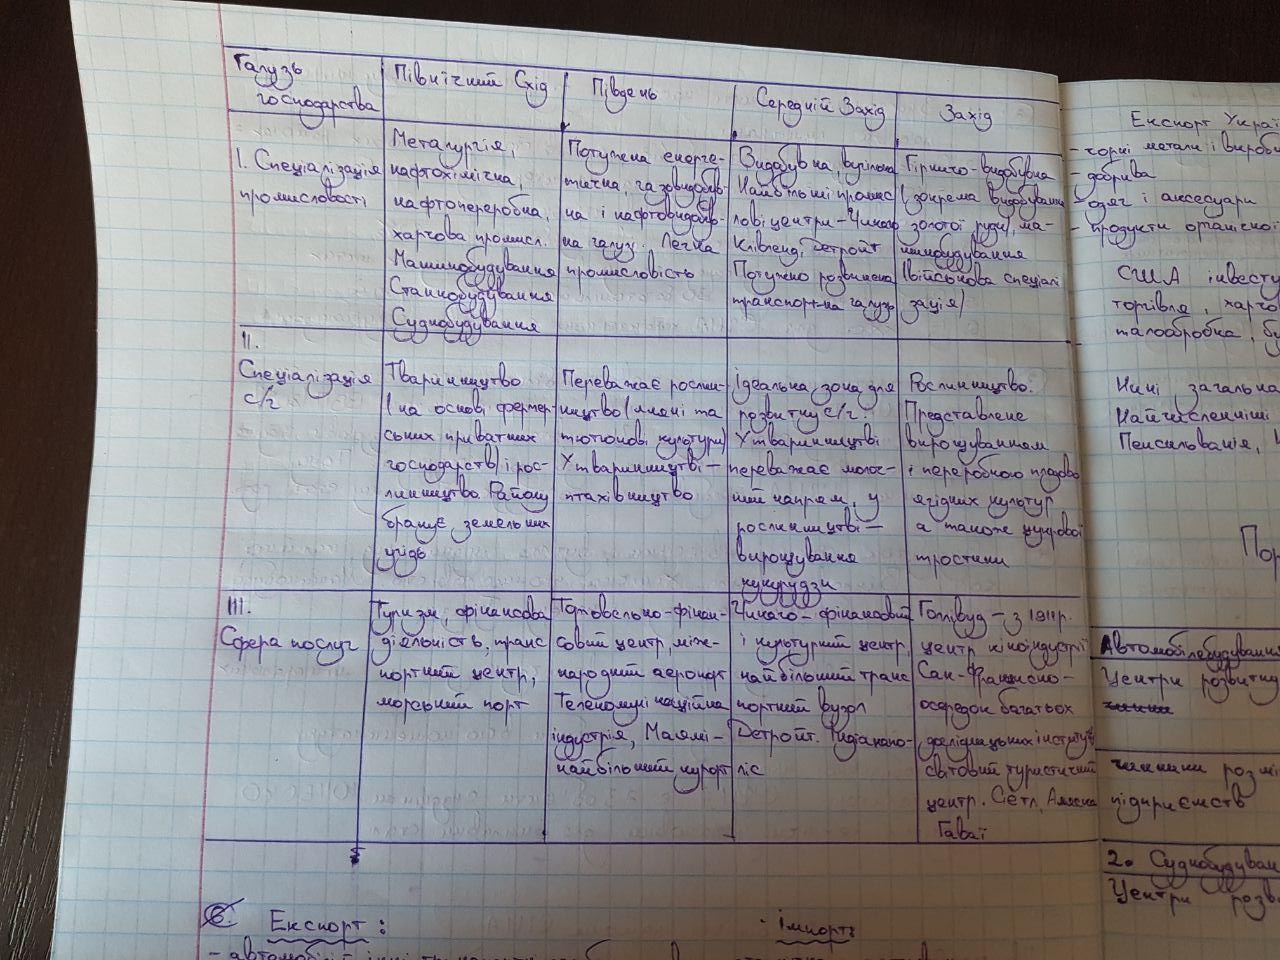 Галузь
господарства
Північний Схід
Південь
Середній Захід
Захід
1. Спеціалізація
промисловості
Металургія,
нафтохімічна,
нафтопереробна,
харчова промисл.
Машинобудування
Станкобудування
Суднобудування
Потужна енерге-
тична, газовидобув-
на і нафтовидобув-
на галуз. Легка
промисловість
Видобувна, вугільна
Найбільші промис
лові центри – Чикаго
Клівленд, Детройт
Потужно розвинена
транспорт-на галузь
Гірничо-видобувна
(зокрема видобування
золотої руди), ма-
шинобудування
(військова спеціалі
зація)
II.
Спеціалізація
с/г
Тваринництво
(на основі фермер-
ських приватних
господарств) і рос-
линництво. Району
бракує земельних
угідь
Переважає рослин-
ництво (лляні та
тютюнові культури)
У тваринництві –
птахівництво
Ідеальна зона для
розвитку с/г.
У тваринництві
переважає молоч-
ний напрям, у
рослинництві –
вирощування
кукурудзи
Рослинництво.
Представлене
вирощуванням
і переробкою плодово
ягідних культур
а також цукрової
тростини
III.
Сфера послуг
Туризм, фінансова
діяльність, транс
портний центр,
морський порт
Торговельно-фінан-
совий центр, між-
народний аеропорт
Телекомунікаційна
індустрія, Маямі –
найбільший курорт
Чикаго – фінансовий
і культурний центр,
найбільший транс
портний вузол
Детройт. Індіанапо-
ліс
Голівуд – з 1911р.
центр кіноіндустрії
Сан-Франциско –
осередок багатьох
дослідницьких інститутів
світовий туристичний
центр. Сіетл, Аляска
Гаваї
6. Експорт:
імпорт:
Експорт Украї
- чорні метали і вироби
- добрива
- одяг і аксесуари
- продукти органічної
США інвесту
торгівля, харчо
талообробка, бу
Нині загальна
Найчисленніші
Пенсильванія,
Пор
Автомобілебудування
Центри розвитку
чинники розмі
підприємств
2. Суднобудуван
Центри розв